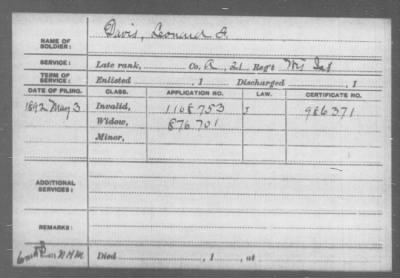 NAME OF SOLDIER: Davis, Leonard
SERVICE: Late rank, Co. A, 2d Reg't Wis Inf
TERM OF SERVICE: Enlisted , 1 Discharged , 1
DATE OF FILING. CLASS. APPLICATION NO. LAW. CERTIFICATE NO.
1892 May 3 Invalid, 1108753 J 986371
Widow, 876.701
Minor,
ADDITIONAL SERVICES:
REMARKS:
Died , 1 , at